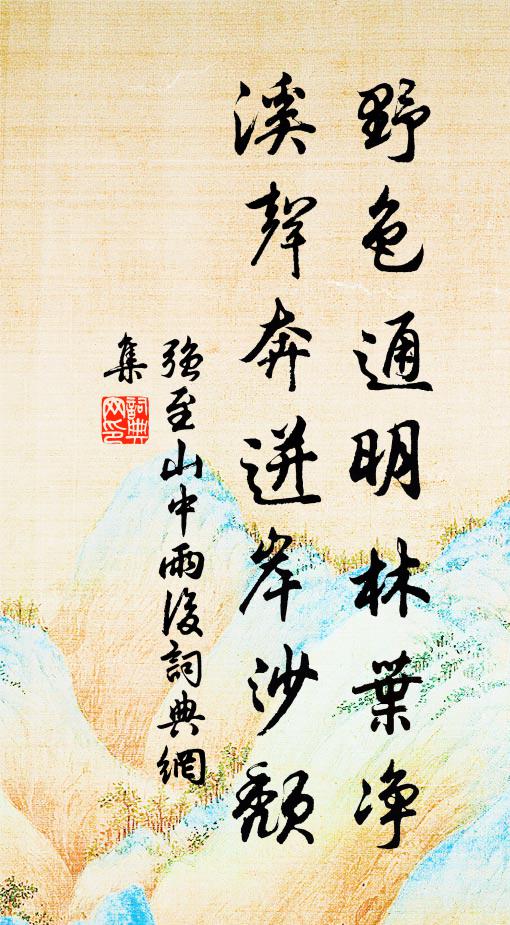 野色通明林葉净
溪聲奔迸岸沙頹
强至山中雨後詞典網
集
詞典
网印